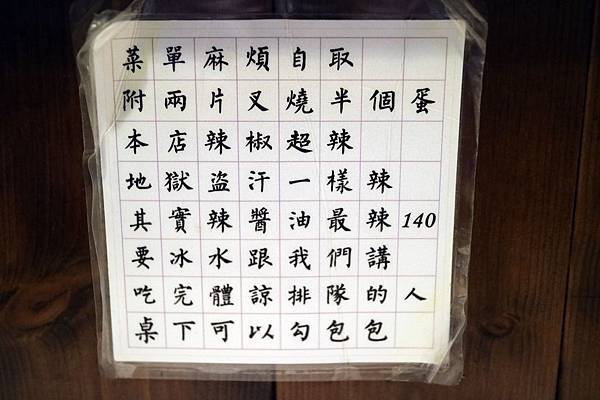 菜單麻煩自取
附兩片叉燒半個蛋
本店辣椒超辣
地獄盜汗一樣辣
其實辣醬油最辣140
要冰水跟我們講
吃完體諒排隊的人
桌下可以勾包包